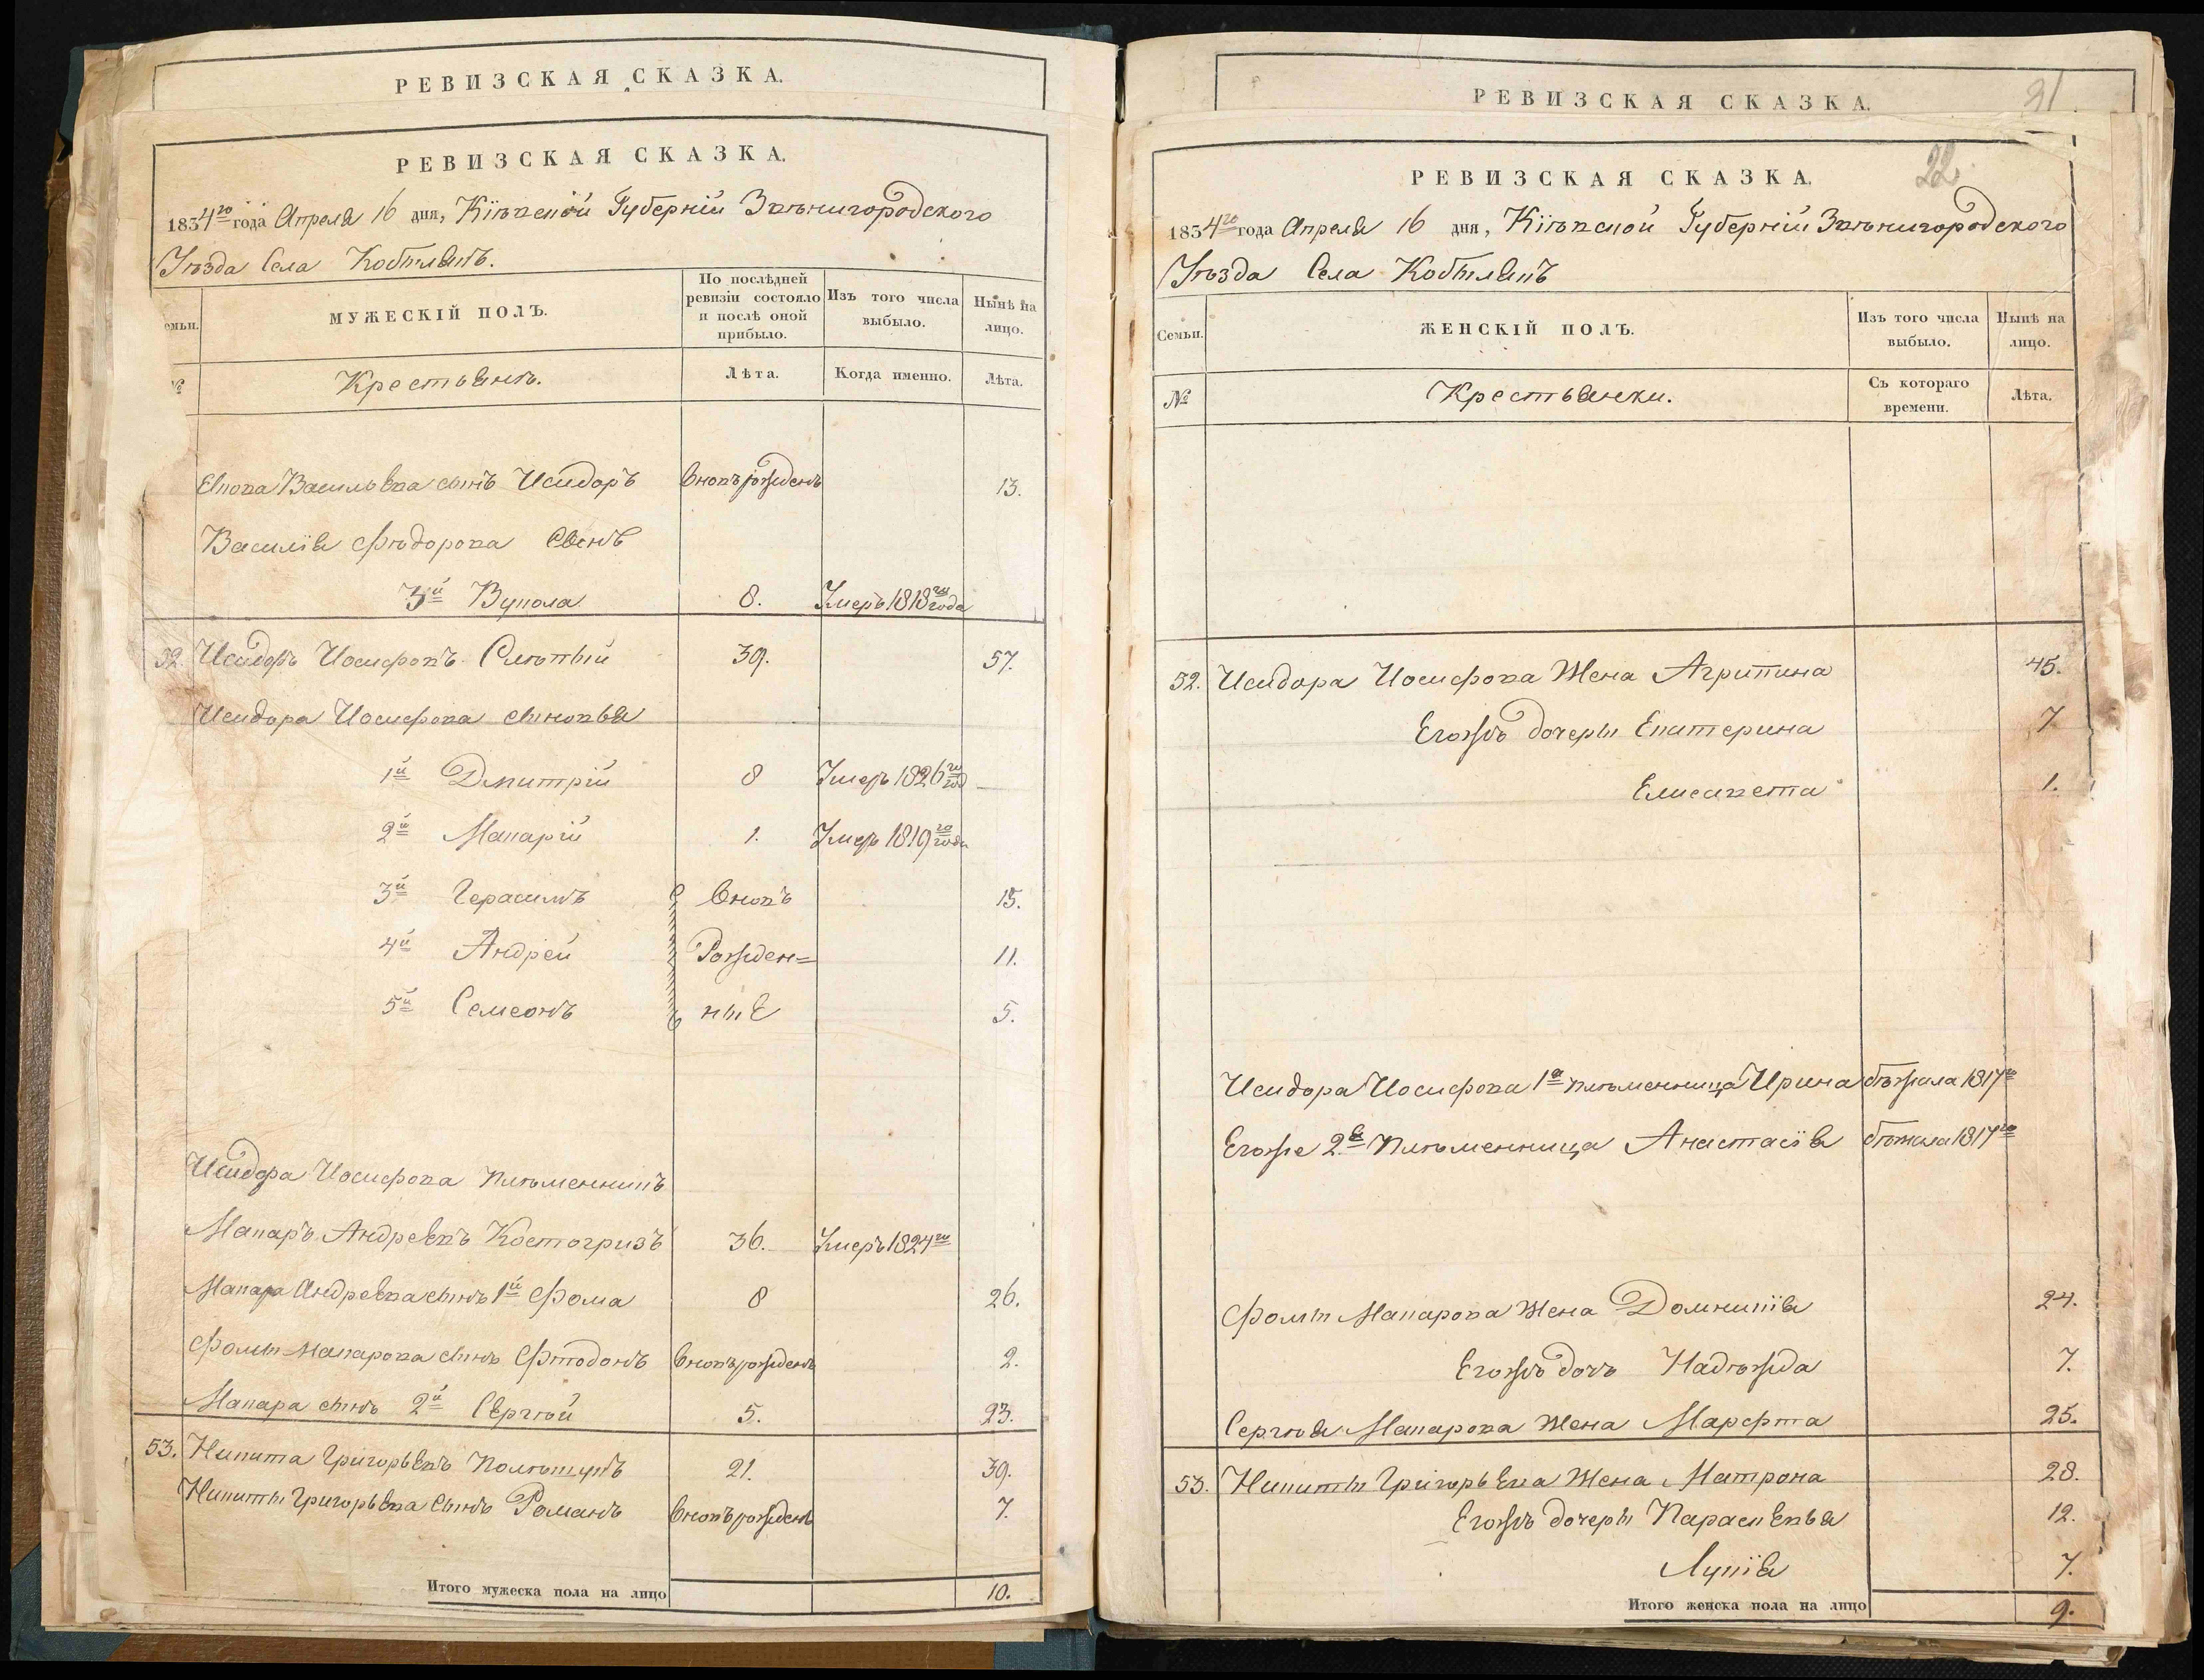 РЕВИЗСКАЯ СКАЗКА.
РЕВИЗСКАЯ СКАЗКА.
1834го года Апреля 16 дня, Кіевской Губерніи Звенигородского
Уѣзда Села
емьи.
МУЖЕСКІЙ ПОЛЪ.
По послѣдней ревизіи состояло и послѣ оной прибыло.
Изъ того числа выбыло.
Нынѣ на лицо.
№
Крестьянъ.
Лѣта.
Когда именно.
Лѣта.
Васильева сынъ Исидоръ вновърожденъ 13.
Василія Фѣдорова Сынъ
3й Вукола 8. Умеръ 1818го года
52. Исидоръ Иосифовъ Слѣпый 39. 57.
Исидора Иосифова сыновья
1й Дмитрій 8 Умеръ 1826го год
2й Макарій 1. Умеръ 1819го года
3й Герасимъ Вновъ 15.
4й Андрей Рожден= 11.
5й Семеонъ ные 5.
Исидора Иосифова племенникъ
Макаръ Андреевъ Костогризъ 36. Умеръ 1824го
Макара Андреева сынъ 1й Фома 8 26.
Фомы Макарова сынъ Фтодонъ вновърожденъ 2.
Макара сынъ 2й Сергѣй 5. 23.
53. Никита Григорьевъ 21. 39.
Никиты Григорьева Сынъ Романъ вновърожденъ 7.
Итого мужеска пола на лицо 10.
РЕВИЗСКАЯ СКАЗКА.
21
РЕВИЗСКАЯ СКАЗКА.
22.
1834го года Апреля 16 дня, Кіевской Губерніи Звенигородского
Уѣзда Села
Семьи.
ЖЕНСКІЙ ПОЛЪ.
Изъ того числа выбыло.
Нынѣ на лицо.
№
Крестьянки.
Съ котораго времени.
Лѣта.
52. Исидора Иосифова Жена Агрипина 45.
Егожъ дочеры Екатерина 7
Елисавета 1.
Исидора Иосифова 1я племенница Ирина бѣжала 1817го
Егоже 2я Племенница Анастасія бѣжала 1817го
Фомы Макарова Жена Домникія 24.
Егожъ дочъ Надѣжда 7.
Сергѣя Макарова Жена Марфта 25.
53. Никиты Григорьева Жена Матрона 28.
Егожъ дочеры Параскевья 12.
Лукія 7.
Итого женска пола на лицо 9.